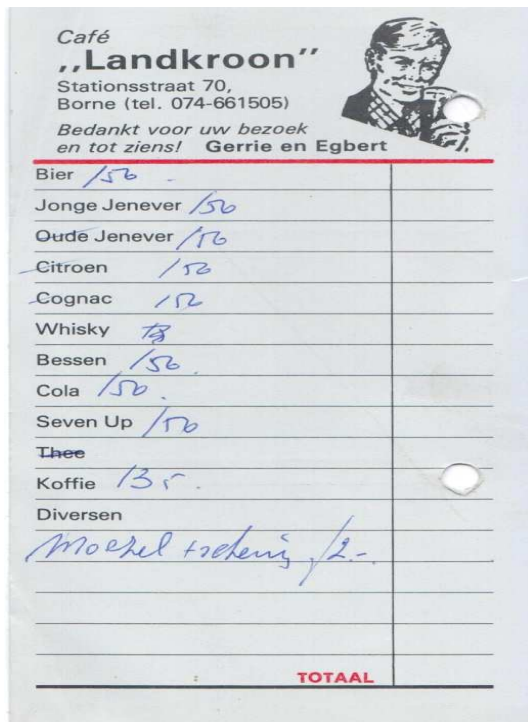 Café
,,Landkroon”
Stationsstraat 70,
Borne (tel. 074-661505)
Bedankt voor uw bezoek
en tot ziens! Gerrie en Egbert
Bier /50
Jonge Jenever /50
Oude Jenever /50
Citroen /50
Cognac /50
Whisky
Bessen /50.
Cola /50.
Seven Up /50
Thee
Koffie /35.
Diversen
Moezel /2.-
TOTAAL